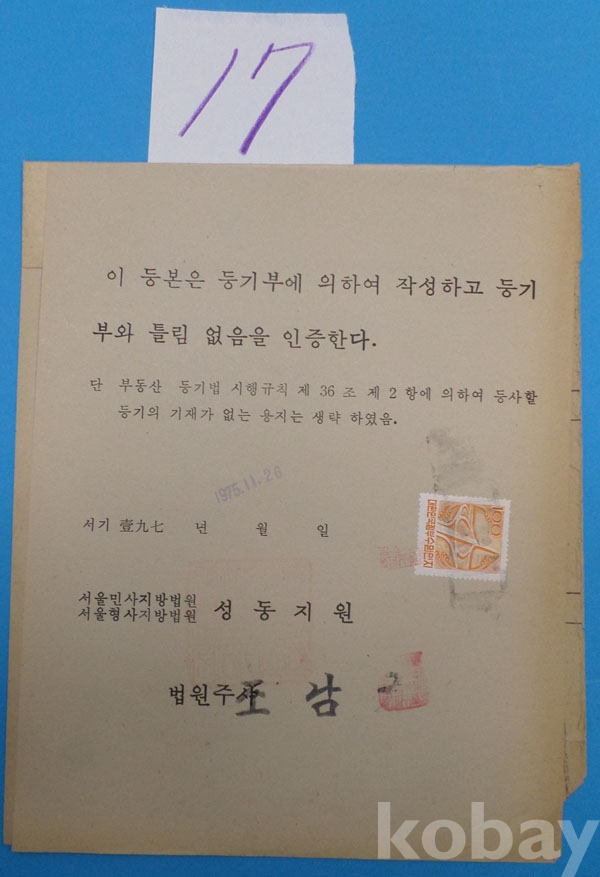 17
이 등본은 등기부에 의하여 작성하고 등기
부와 틀림 없음을 인증한다.
단 부동산 등기법 시행규칙 제 36 조 제 2 항에 의하여 등사할
등기의 기재가 없는 용지는 생략 하였음.
1975.11.26
서기 壹九七 년 월 일
100
대한민국정부수입인지
서울민사지방법원
서울형사지방법원 성동지원
법원주사 조 남
kobay